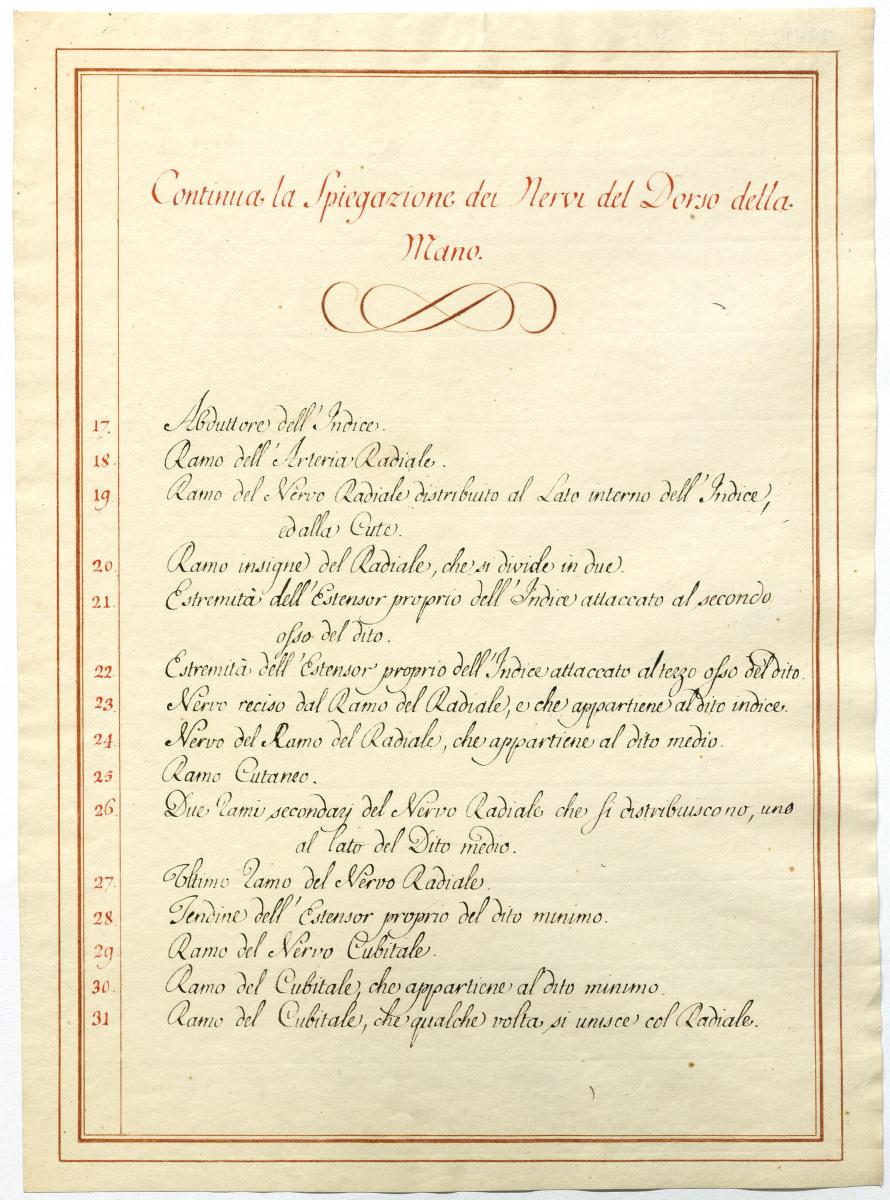 Continua la Spiegazione dei Nervi del Dorso della
Mano.
17. Abduttore dell'Indice.
18. Ramo dell'Arteria Radiale.
19. Ramo del Nervo Radiale distribuito al Lato interno dell'Indice,
ed alla Cute.
20. Ramo insigne del Radiale, che si divide in due.
21. Estremità dell'Estensor proprio dell'Indice attaccato al secondo
osso del dito.
22. Estremità dell'Estensor proprio dell'Indice attaccato al terzo osso del dito.
23. Nervo reciso dal Ramo del Radiale, e che appartiene al dito indice.
24. Nervo del Ramo del Radiale, che appartiene al dito medio.
25. Ramo Cutaneo.
26. Due rami secondarj del Nervo Radiale che si distribuiscono, uno
al lato del Dito medio.
27. Ultimo ramo del Nervo Radiale.
28. Tendine dell'Estensor proprio del dito minimo.
29. Ramo del Nervo Cubitale.
30. Ramo del Cubitale, che appartiene al dito minimo.
31 Ramo del Cubitale, che qualche volta si unisce col Radiale.